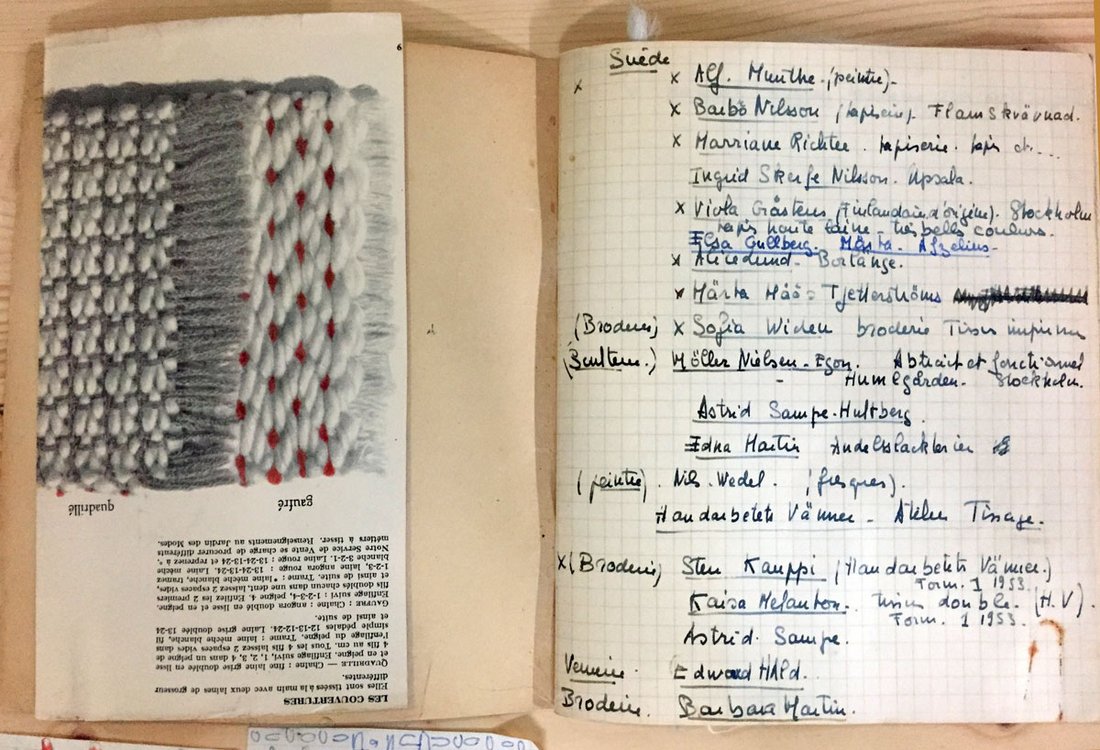 gaufré
quadrillé
LES COUVERTURES
Elles sont tissées à la main avec deux laines de grosseur
différentes.
QUADRILLÉ — Chaîne : fine laine grise doublée en lisse
et en peigne. Enfilage suivi, 1, 2, 3, 4 dans un peigne de
4 fils au cm. Tous les 4 fils laissez 2 espaces vides dans
l'enfilage du peigne. Trame : laine mèche blanche, fil
simple pédales 12-13-12-24. Laine grise doublée 13-24
et ainsi de suite.
GAUFRÉ : Chaîne : angora doublé en lisse et en peigne.
Enfilage suivi : 1-2-3-4, peigne 4. Enfilez les 2 premiers
fils doublés chacun dans une dent, laissez 2 espaces vides,
et ainsi de suite. Trame : *laine mèche blanche, tramez
1-2-3, laine angora rouge : 13-24-13-24. Laine mèche
blanche 3-2-1. Laine rouge : 13-24-13-24 et reprenez à *.
Notre Service de Vente se charge de procurer différents
métiers à tisser. Renseignements au Jardin des Modes.
Suède
x x Alf. Munthe. (peintre)-
x Barbö Nilsson (tapiserie) Flamskvävnad.
x Marriane Richter. tapiserie. tapis et...
Ingrid Skerfe Nilsson. Upsala.
x Viola Gråstens (Finlandaise d'origine). Stockholm
tapis haute laine - très belles couleurs.
Elsa Gullberg. Märta. Afzelius-
x Alice Lund. Borlänge.
x Märta Måås Fjetterströms
(Broderie) x Sofia Widen broderie Tissus imprimés
(Sculteur.) Möller Nielsen-Egon. Abstrait et fonctionnel
- Humlegården. Stockholm.
Astrid Sampe-Hultberg.
Edna Martin
(peintre). Nils. Wedel. (fresques).
Handarbetets Vänner - Atelier Tissage.
x (Broderie) Sten Kauppi (Handarbetets Vänner.)
Form. 1 1953.
Kaisa Melanton. tissus double. (H.V).
Form. 1 1953.
Astrid. Sampe.
Verrerie. Edward HAld.
Broderie. Barbara Martin.